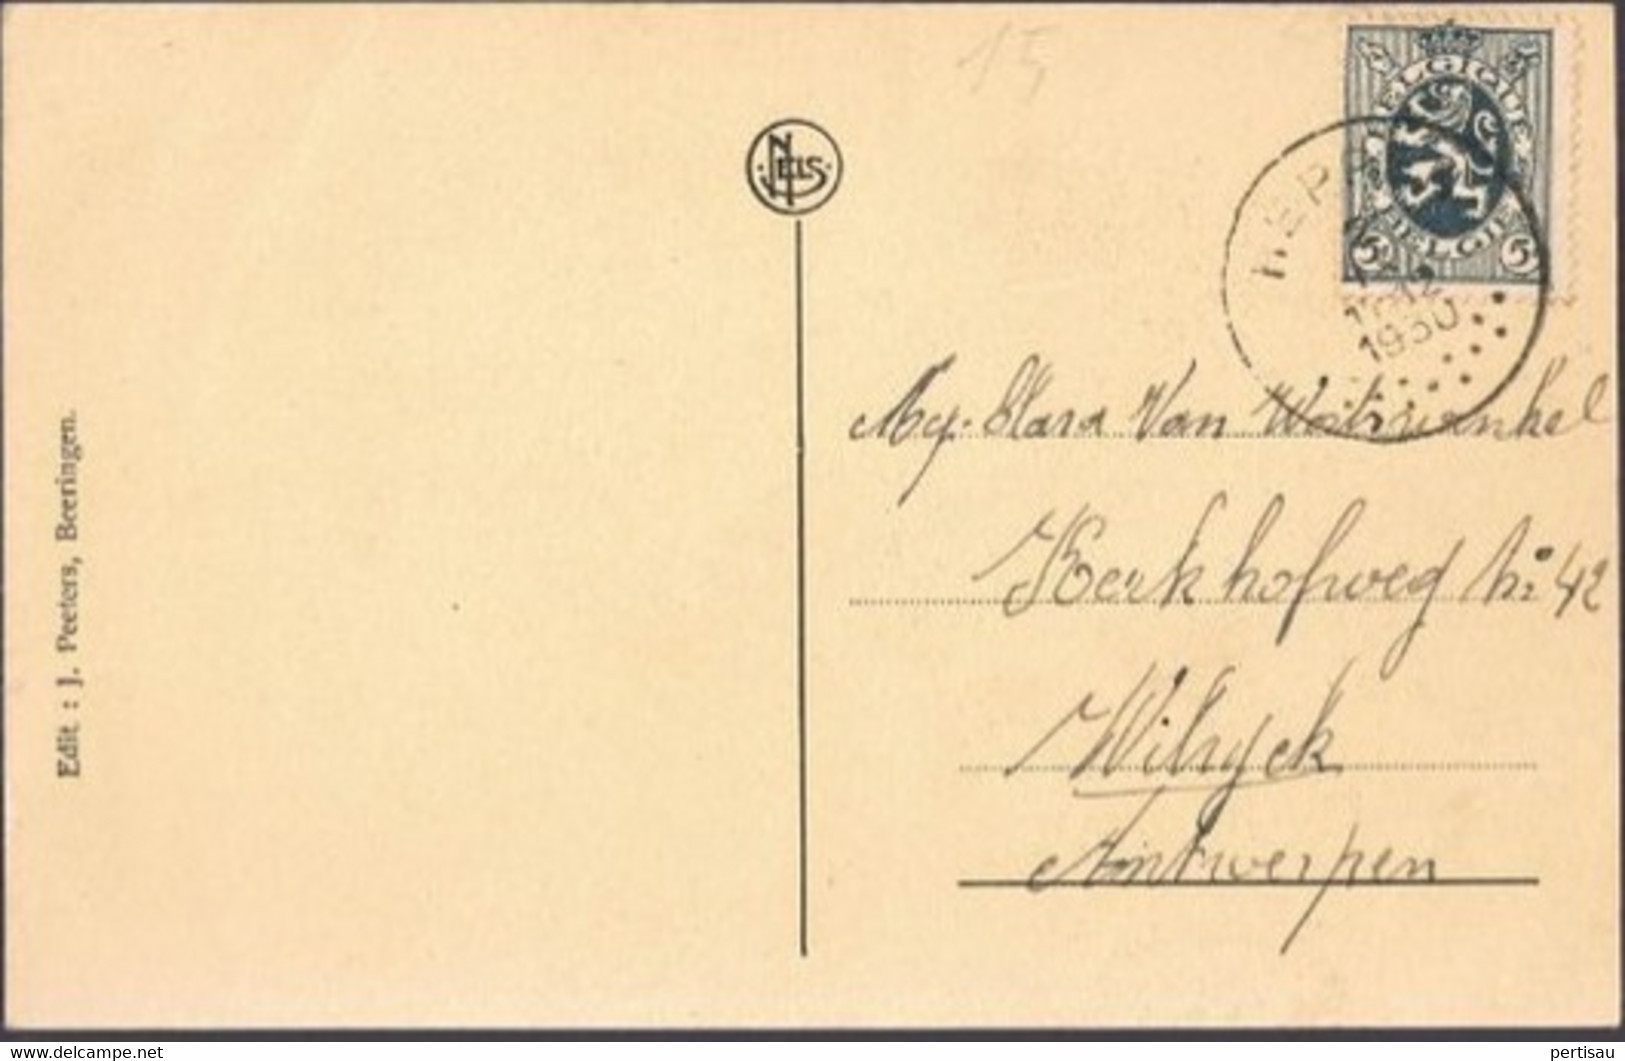 15
BELGIQUE
BELGIË
5 5
NELS
HEPP
12
1930
Mej. Clara Van Wolvwinkel
Kerkhofweg No 42
Wilryck
Antwerpen
Edit : J. Peeters, Beeringen.
delcampe.net
pertisau